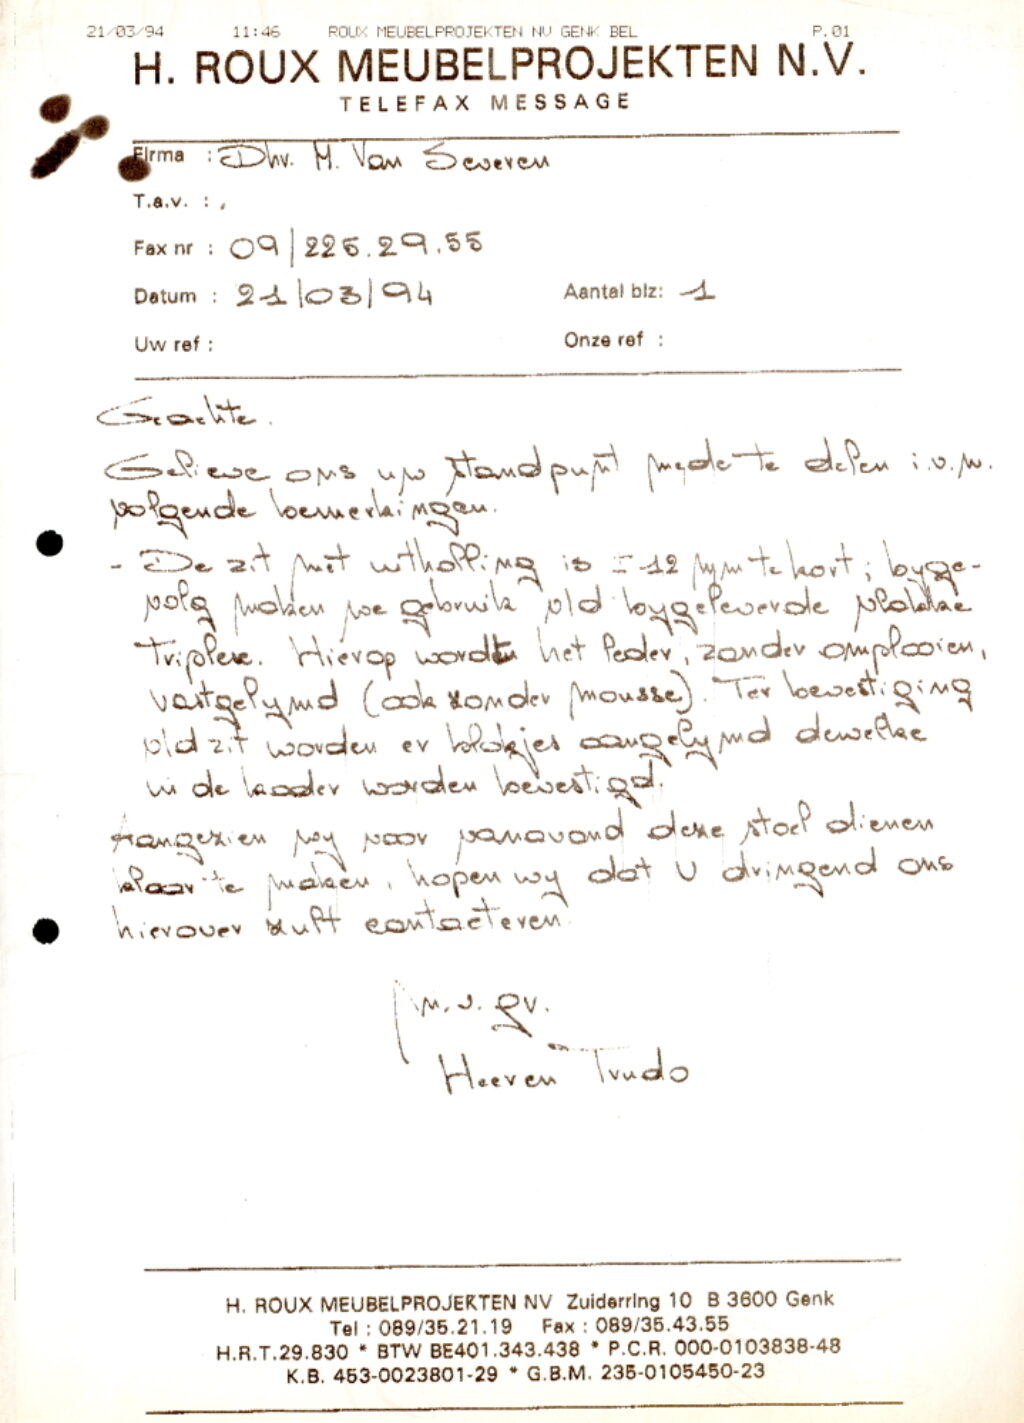 21/03/94 11:46 ROUX MEUBELPROJEKTEN NV GENK BEL P.01
H. ROUX MEUBELPROJEKTEN N.V.
TELEFAX MESSAGE
Firma : Dhr. M. Van Severen
T.a.v. : ,
Fax nr : 09/225.29.55
Datum : 21/03/94 Aantal blz: 1
Uw ref : Onze ref :
Geachte.
Gelieve ons uw standpunt mede te delen i.v.m.
volgende bemerkingen.
- De zit met uitholling is ± 12 mm te kort ; byge-
volg maken we gebruik v/d bygeleverde vlakke
Triplex. Hierop wordt het leder, zonder omplooien,
vastgelymd (ook zonder mousse). Ter bevestiging
v/d zit worden er blokjes aangelymd dewelke
in de kader worden bevestigd.
Aangezien wy voor vanavond deze stoel dienen
klaar te maken, hopen wy dat U dringend ons
hierover zult contacteren.
m.v.gr.
Heeren Trudo
H. ROUX MEUBELPROJEKTEN NV Zuiderring 10 B 3600 Genk
Tel : 089/35.21.19 Fax : 089/35.43.55
H.R.T.29.830 * BTW BE401.343.438 * P.C.R. 000-0103838-48
K.B. 453-0023801-29 * G.B.M. 235-0105450-23